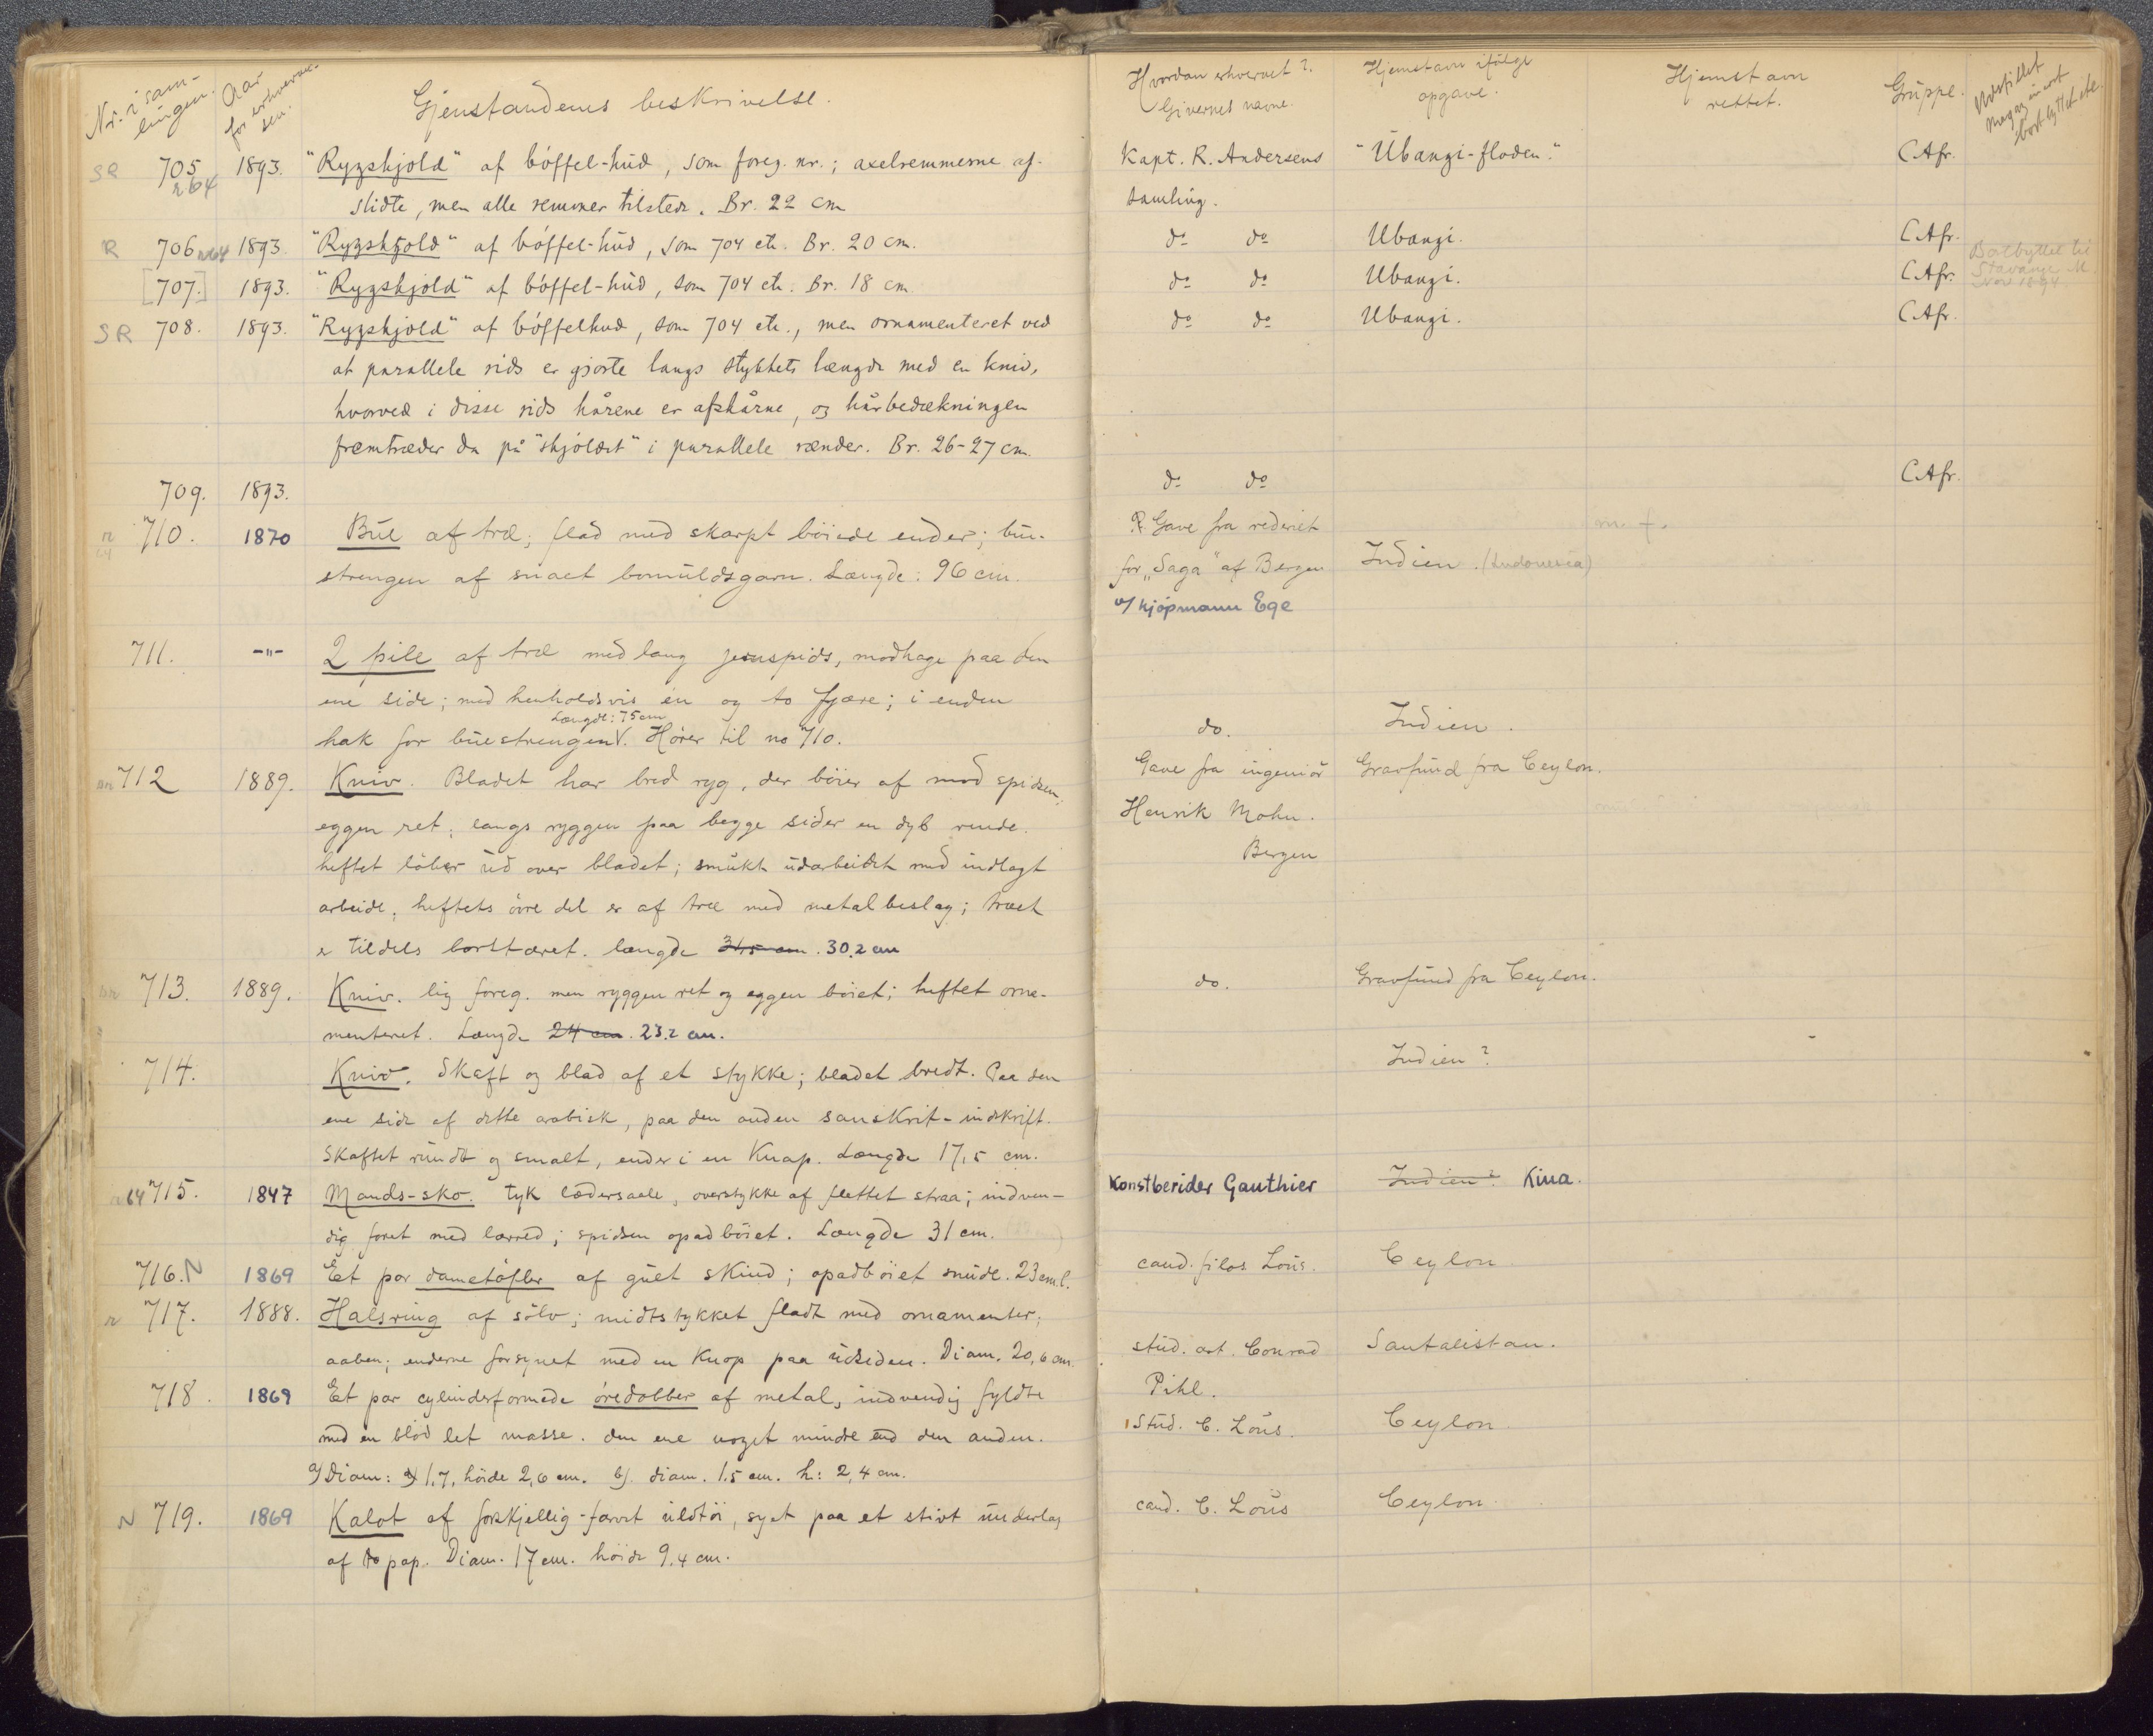 Nr. i sam-
lingen.
Aar
for erhvervel-
sen.
Gjenstandens beskrivelse.
Hvordan erhvervet?
Givernes navne.
Hjemstavn ifölge
opgave.
Hjemstavn
rettet.
Gruppe.
Udstillet
bortbyttet etc.
SR 705 1893. "Rygskjold" af böffel-hud, som foreg. nr.; axelremmerne af- Kapt. R. Andersens "Ubangi-floden." C Afr.
r64 slidte, men alle remmer tilstede. Br. 22 cm samling.
R 706 r64 1893. "Rygskjold" af böffel-hud, som 704 etc. Br. 20 cm. do do Ubangi. C Afr.
[707.] 1893. "Rygskjold" af böffel-hud, som 704 etc. Br. 18 cm do do Ubangi. C Afr. Botbyttet til
Stavanger M.
1894
SR 708. 1893. "Rygskjold" af böffelhud, som 704 etc., men ornamenteret ved do do Ubangi. C Afr.
at parallele rids er gjorte langs stykkets længde med en kniv,
hvorved i disse rids hårene er afskårne, og hårbedækningen
fremtræder da på "skjoldet" i parallele rænder. Br. 26-27 cm.
709. 1893. do do C Afr.
r 710. 1870 Bue af træ; flad med skarpt böiede ender; bue- Gave fra rederiet
64 strengen af snoet bomuldsgarn. Længde: 96 cm. for "Saga" af Bergen Indien. (Indonesia)
v/ kjöpmann Ege
711. -"- 2 pile af træ med lang jernspids, modhage paa den
ene side; med henholdsvis en og to fjære; i enden
Længde: 75 cm
hak for buestrengen V. Hører til no 710. do. Indien.
712 1889. Kniv. Bladet har bred ryg, der böier af mod spidsen; Gave fra ingeniör Gravfund fra Ceylon.
eggen ret; langs ryggen paa begge sider en dyb rende. Henrik Mohn.
heftet löber ud over bladet; smukt udarbeidet med indlagt Bergen
arbeide, heftets övre del er af træ med metalbeslag; træet
er tildels borttæret. længde 31,5 cm. 30,2 cm
713. 1889. Kniv. lig foreg. men ryggen ret og eggen böiet; heftet orna- do. Gravfund fra Ceylon.
menteret. Længde 24 cm. 23,2 cm.
714. Kniv. Skaft og blad af et stykke; bladet bredt. Paa den Indien?
ene side af dette arabisk, paa den anden sanskrit-indskrift.
Skaftet rundt og smalt, ender i en Knap. Længde 17,5 cm.
64 715. 1847 Mands-sko. tyk lædersaale, overstykke af flettet straa; indven- Konstberider Gauthier Indien? Kina.
dig foret med lærred; spidsen opadböiet. Længde 31 cm.
716. N 1869 Et par dametöfler af gult skind; opadböiet snude. 23 cm l. cand. filos Lous. Ceylon
r 717. 1888. Halsring af sölv; midtstykket fladt med ornamenter;
aaben; enderne forsynet med en Knop paa udsiden. Diam. 20,6 cm. stud. art. Conrad Santalistan.
718. 1869 Et par cylinderformede öredobber af metal, indvendig fyldte Pihl.
med en blöd let masse. den ene noget mindre end den anden. Stud. C. Lous. Ceylon
a) Diam: 1,7, höide 2,6 cm. b). diam. 1,5 cm. h: 2,4 cm.
N 719. 1869 Kalot af forskjellig-farvet uldtöi, syet paa et stivt underlag cand. C. Lous Ceylon.
af pap. Diam. 17 cm. höide 9,4 cm.